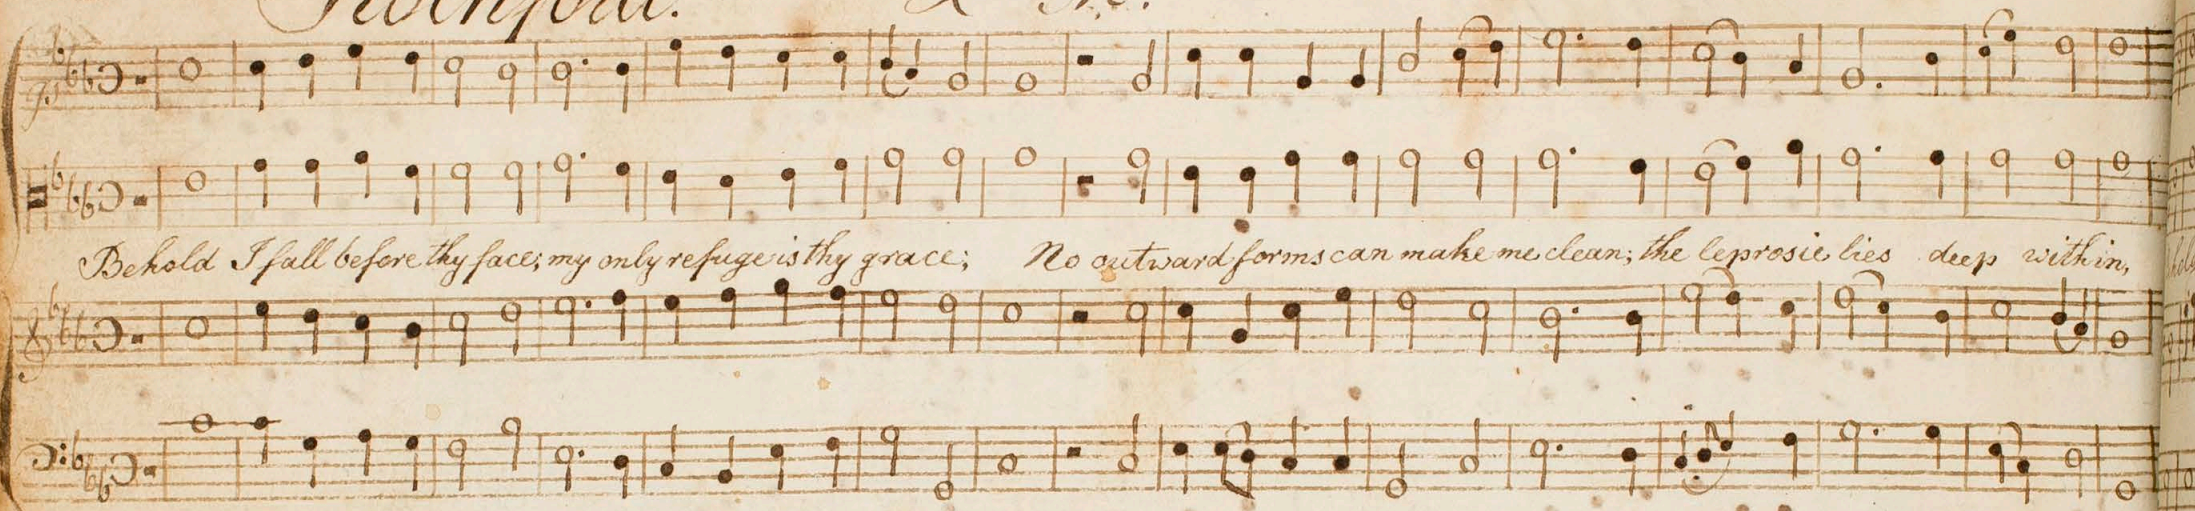 Behold I fall before thy face; my only refuge is thy grace; No outward forms can make me clean; the leprosie lies deep within,